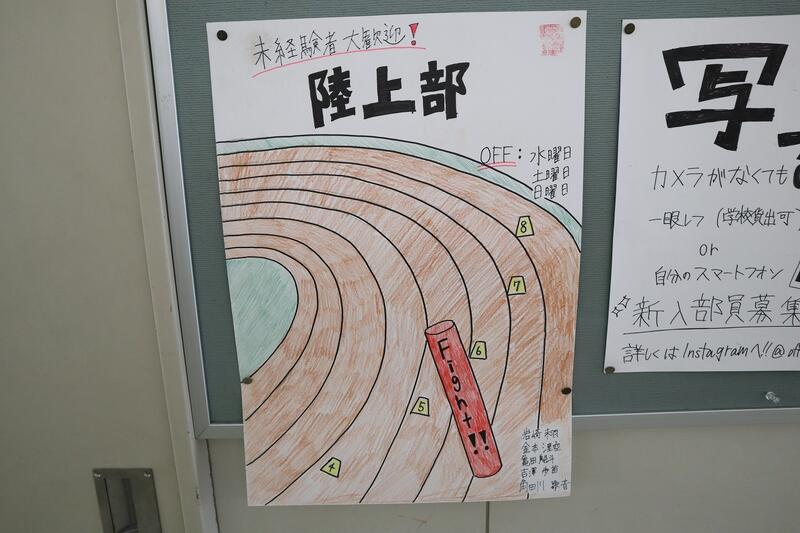 未経験者大歓迎!
陸上部
OFF: 水曜日
土曜日
日曜日
8
7
6
5
4
Fight!!
岩崎
金本
亀田
吉澤
角田川
写
カメラがなくても
一眼レフ (学校貸出可)
or
自分のスマートフォン
新入部員募集
詳しくはInstagramへ!!@